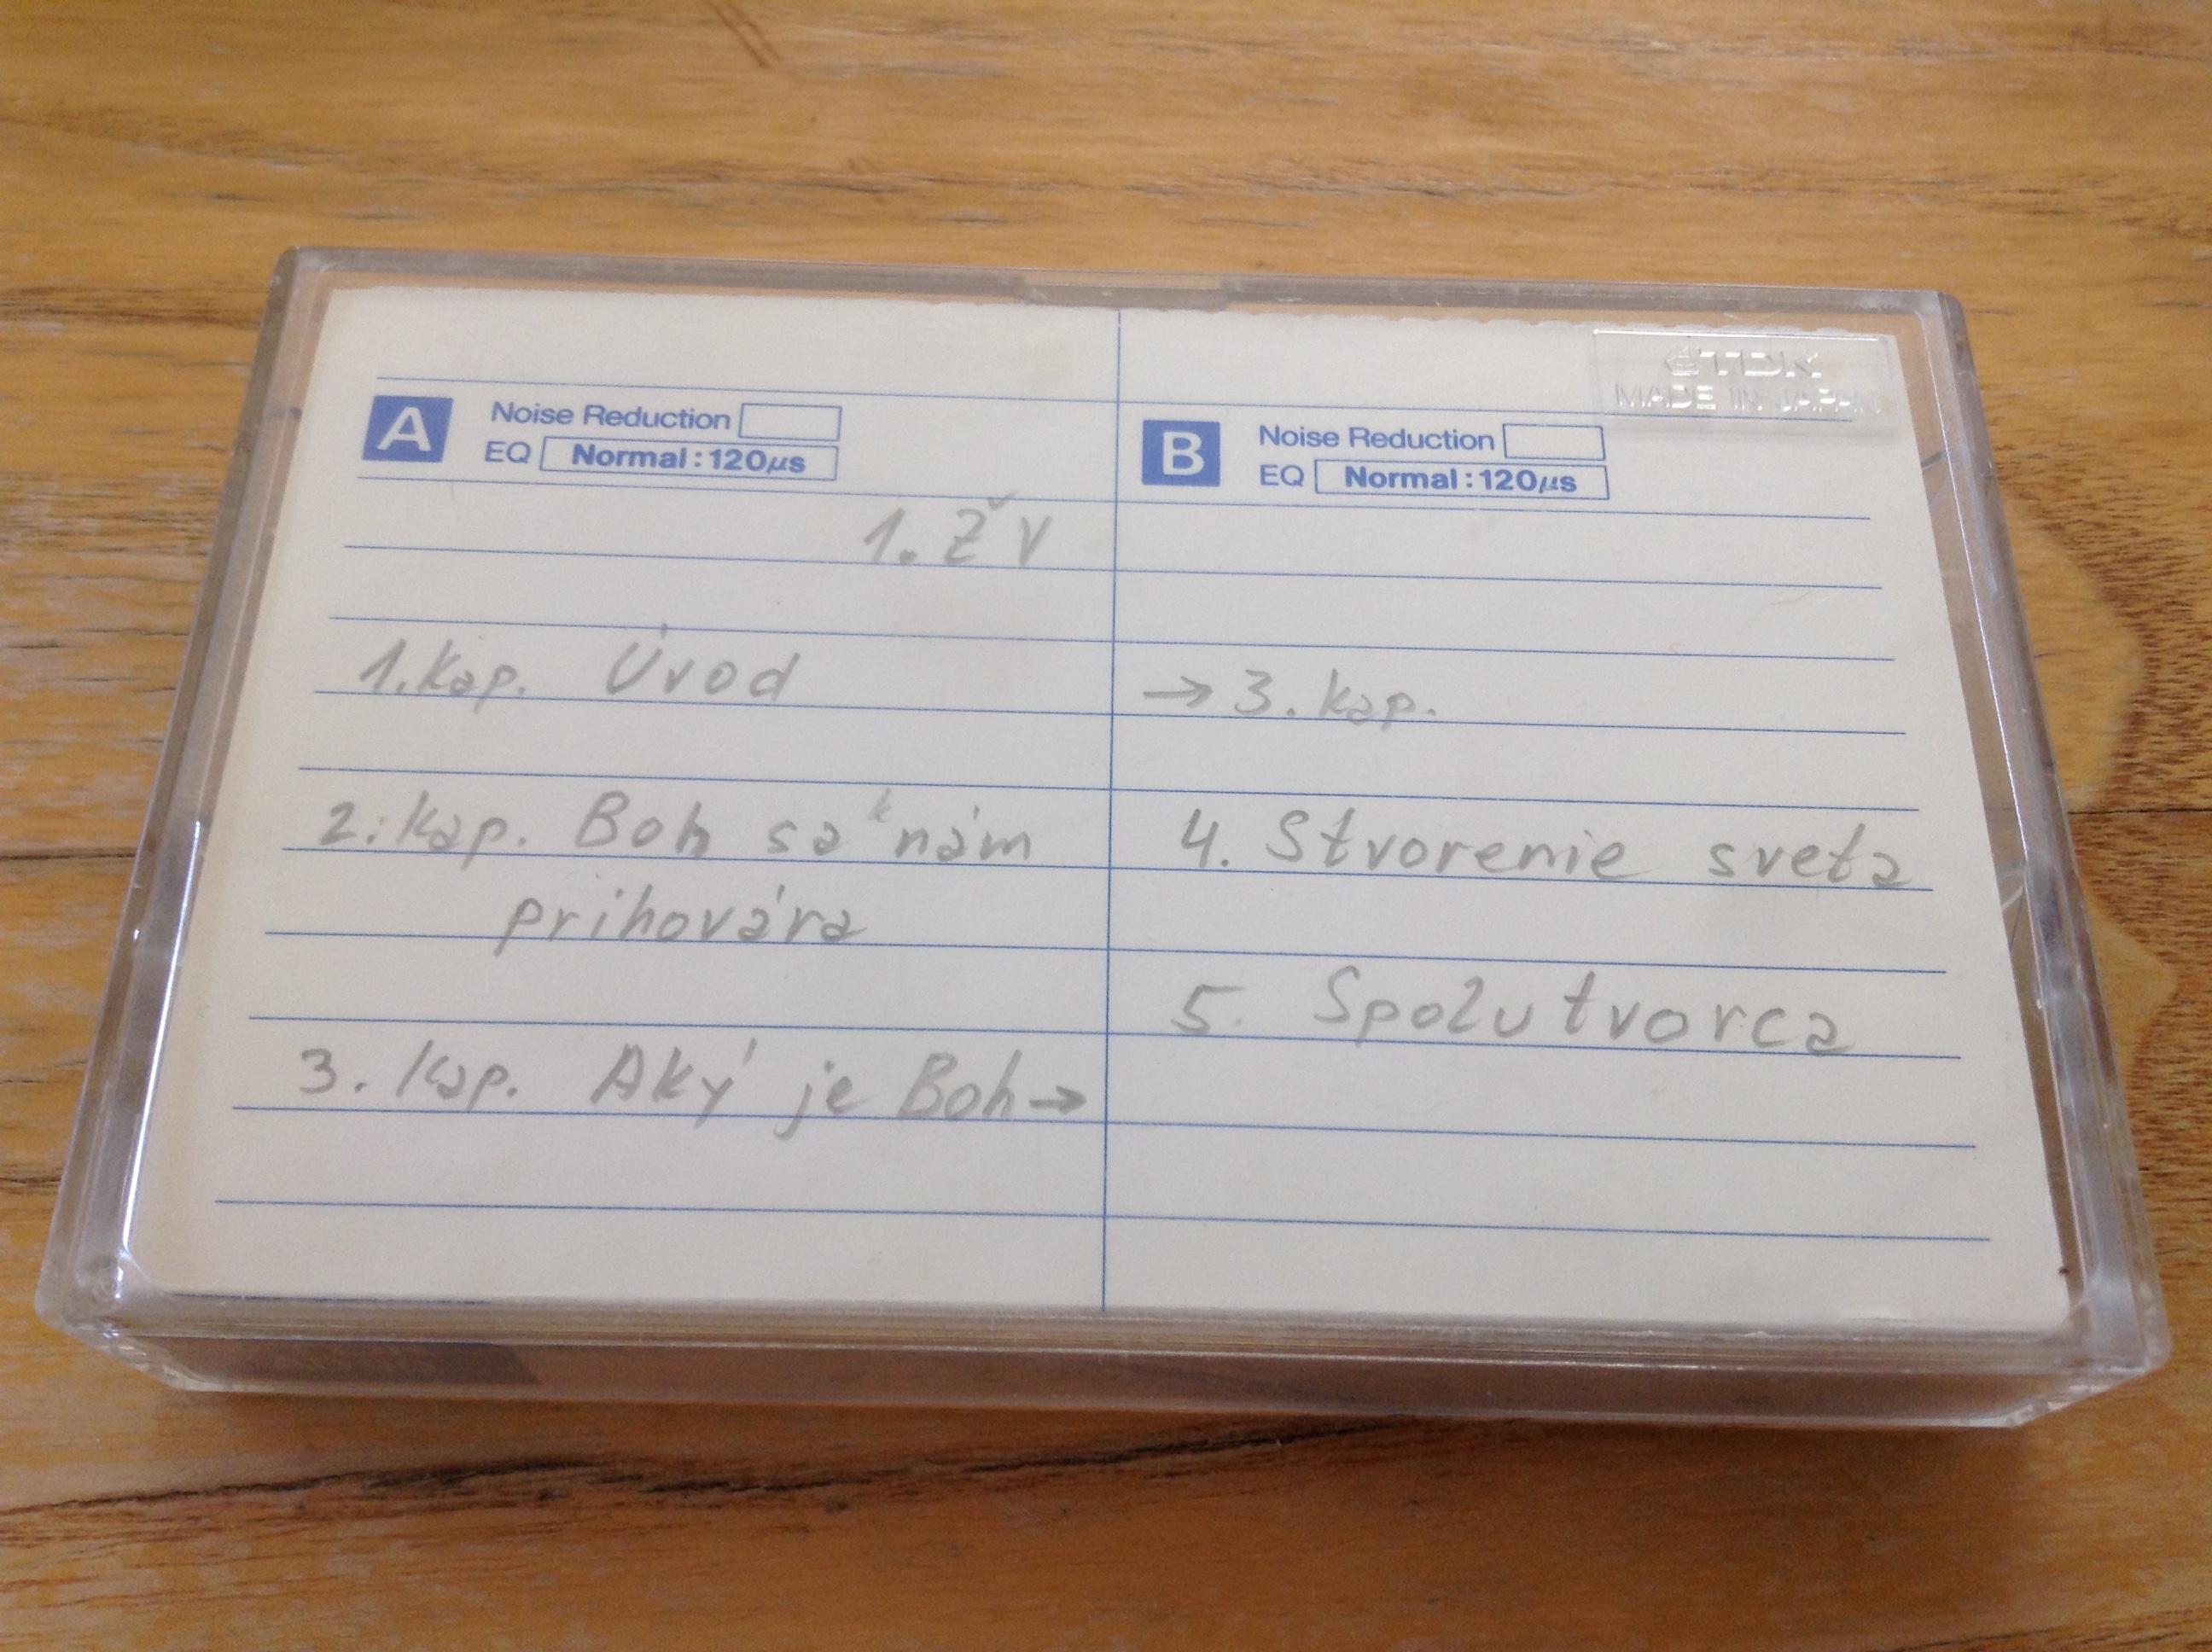 A Noise Reduction
EQ Normal : 120µs
1. ŽV
1. kap. Úvod
2. kap. Boh sa k nám
prihovára
3. kap. Aký je Boh →
TDK
MADE IN JAPAN
B Noise Reduction
EQ Normal : 120µs
→ 3. kap.
4. Stvorenie sveta
5. Spolutvorca